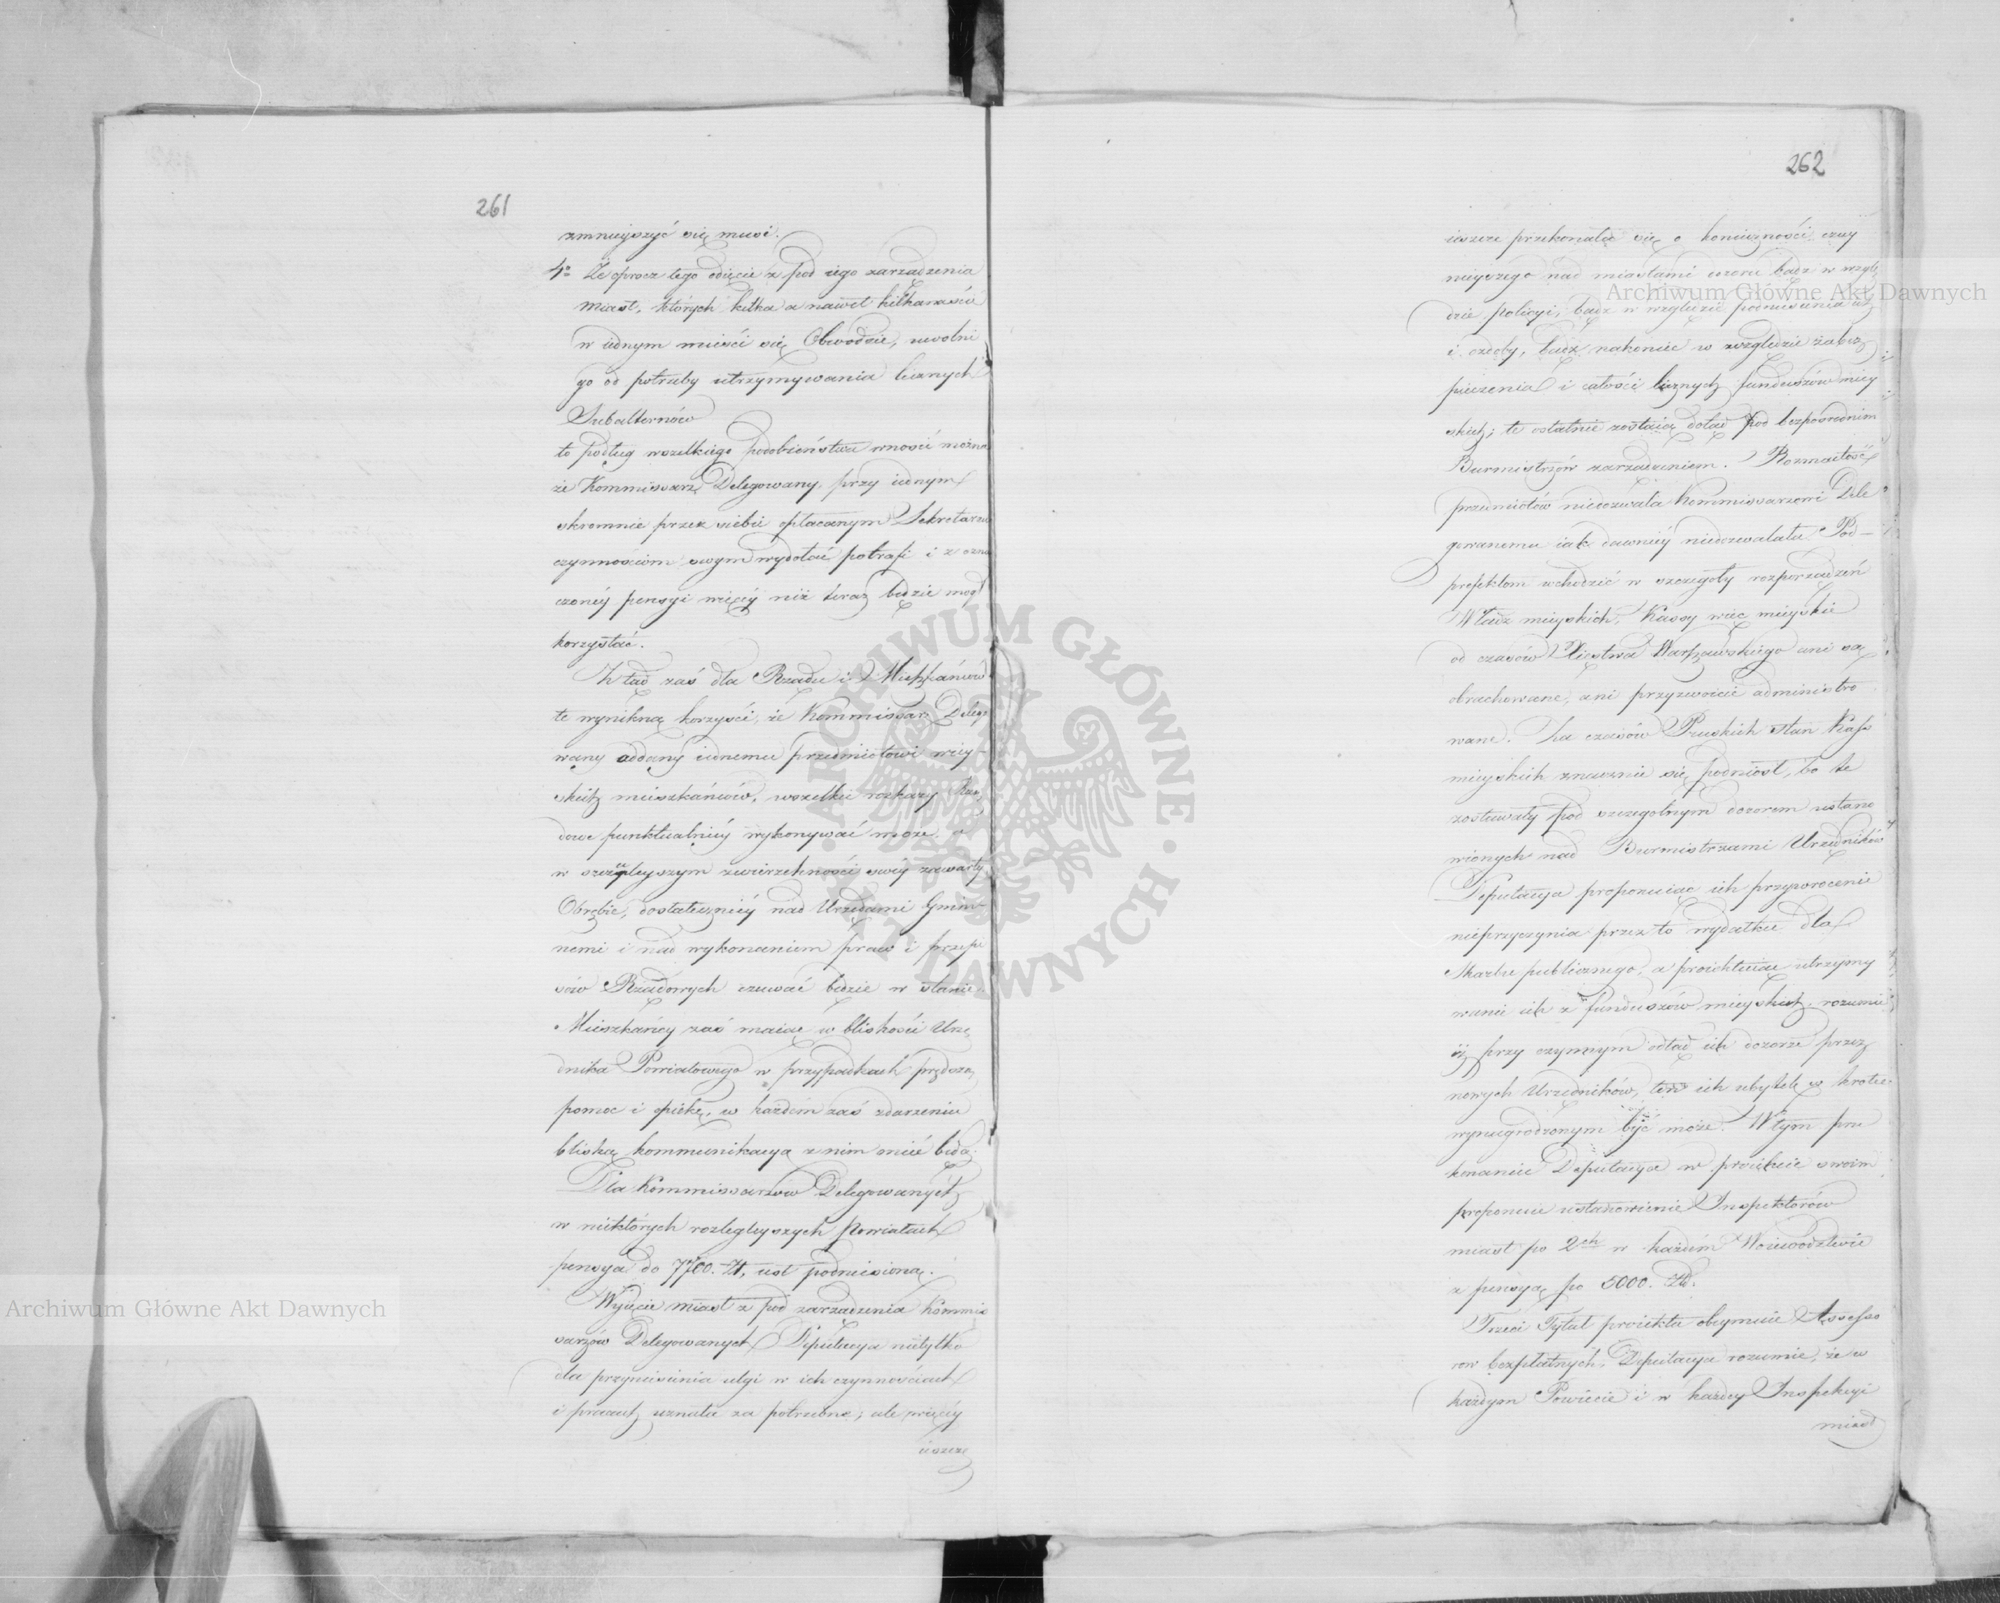 261
zmnieyszyć się musi.
4o Że oprocz tego odięcie z pod iego zarządzenia
miast, których kilka a nawet kilkanaście
w iednym mieści się Obwodzie, uwolni
go od potrzeby utrzymywania licznych
Subalternów
to podług wszelkiego podobieństwa wnosić można
że Kommissarz Delegowany, przy iednym
skromnie przez siebie opłacanym Sekretarzu
czynnościom swym wydołać potrafi i z ozna
czoney pensyi więcey niż teraz będzie mógł
korzystać.
Ztąd zaś dla Rządu i Mieszkańców
te wynikną korzyści, że Kommissarz Delego
wany oddany iednemu przedmiotowi wiey-
skich mieszkańców, wszelkie rozkazy Rzą
dowe punktualniey wykonywać może, a
w szczupleyszym zwierzchności swey zawarty
Obrębie, dostateczniey nad Urzędami Gmin-
nemi i nad wykonaniem praw i przepi
sów Rządowych czuwać będzie w stanie.
Mieszkańcy zaś maiąc w bliskości Urzę
dnika Powiatowego w przypadkach prędszą
pomoc i opiekę, w każdém zaś zdarzeniu
bliską kommunikacyą z nim mieć będą.
Dla Kommissarzów Delegowanych
w niektórych rozlegleyszych Powiatach
pensya do 7700. Zł. iest podniesioną.
Wyięcie miast z pod zarządzenia Kommis
sarzów Delegowanych Deputacya nietylko
dla przyniesienia ulgi w ich czynnościach
i pracach uznała za potrzebne; ale więcey
ieszcze
262
ieszcze przekonała się o konieczności czuy
nieyszego nad miastami dozoru bądź w wzglę
dzie Policyi, bądź w względzie podniesienia ich
i ozdoby, bądź nakoniec w względzie zabez
pieczenia i całości licznych funduszów miey
skich; te ostatnie zostaią dotąd pod bezpośrednim
Burmistrzów zarządzeniem. Rozmaitość
przedmiotów niedozwala Kommissarzowi Dele
gowanemu iak dawniey niedozwalała Pod-
prefektom wchodzić w szczegóły rozporządzeń
Władz mieyskich, Kassy więc mieyskie
od czasów Xięstwa Warszawskiego ani są
obrachowane, ani przyzwoicie administro
wane. Za czasów Pruskich stan Kass
mieyskich znacznie się podniosł, bo te
zostawały pod szczególnym dozorem ustano
wionych nad Burmistrzami Urzędników
Deputacya proponuiąc ich przywrócenie
nieprzyczynia przez to wydatku dla
Skarbu publicznego, a proiektuiąc utrzymy
wanie ich z funduszów mieyskich, rozumie
iż przy czynnym odtąd ich dozorze przez
nowych Urzędników, ten ich ubytek w krotce
wynagrodzonym być może. W tym prze
konaniu Deputacya w proiekcie swoim
proponuie ustanowienie Inspektorów
miast po 2ch w każdém Woiewództwie
z pensyą po 5000. Zł.
Trzeci Tytuł proiektu obeymuie Assesso
row bezpłatnych, Deputacya rozumie, że w
każdym Powiecie i w każdey Inspekcyi
miast
ARCHIWUM GŁÓWNE · AKT DAWNYCH ·
Archiwum Główne Akt Dawnych
Archiwum Główne Akt Dawnych